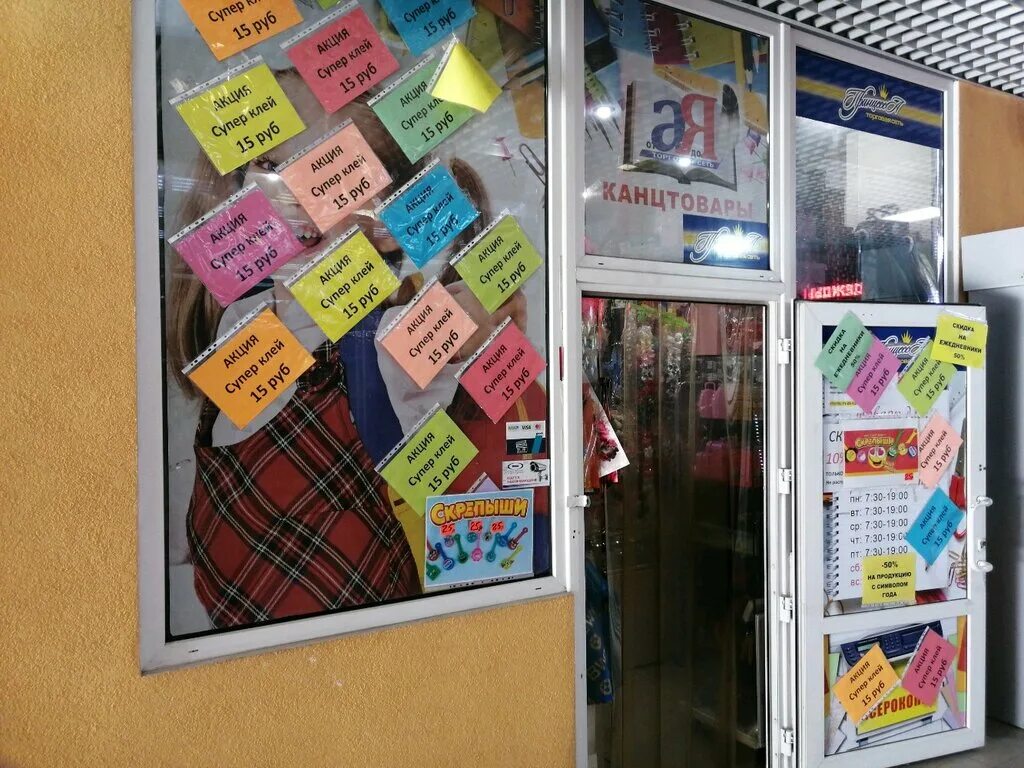 АКЦИЯ
Супер клей
15 руб
АКЦИЯ
Супер клей
15 руб
Супер клей
15 руб
АКЦИЯ
Супер клей
15 руб
АКЦИЯ
Супер клей
15 руб
АКЦИЯ
Супер клей
15 руб
АКЦИЯ
Супер клей
15 руб
АКЦИЯ
Супер клей
15 руб
АКЦИЯ
Супер клей
15 руб
АКЦИЯ
Супер клей
15 руб
АКЦИЯ
Супер клей
15 руб
АКЦИЯ
Супер клей
15 руб
АКЦИЯ
Супер клей
15 руб
АКЦИЯ
Супер клей
15 руб
VISA
СКРЕПЫШИ
25
25
25
КАНЦТОВАРЫ
ПринцессА
торговая сеть
СКИДКА
НА
ЕЖЕДНЕВНИКИ
50%
СКИДКА
НА
ЕЖЕДНЕВНИКИ
50%
АКЦИЯ
Супер клей
15 руб
АКЦИЯ
Супер клей
15 руб
СКРЕПЫШИ
АКЦИЯ
Супер клей
15 руб
пн: 7:30-19:00
вт: 7:30-19:00
ср: 7:30-19:00
чт: 7:30-19:00
пт: 7:30-19:00
сб:
вс:
АКЦИЯ
Супер клей
15 руб
-50%
НА ПРОДУКЦИЮ
С СИМВОЛОМ
ГОДА
АКЦИЯ
Супер клей
15 руб
АКЦИЯ
Супер клей
15 руб